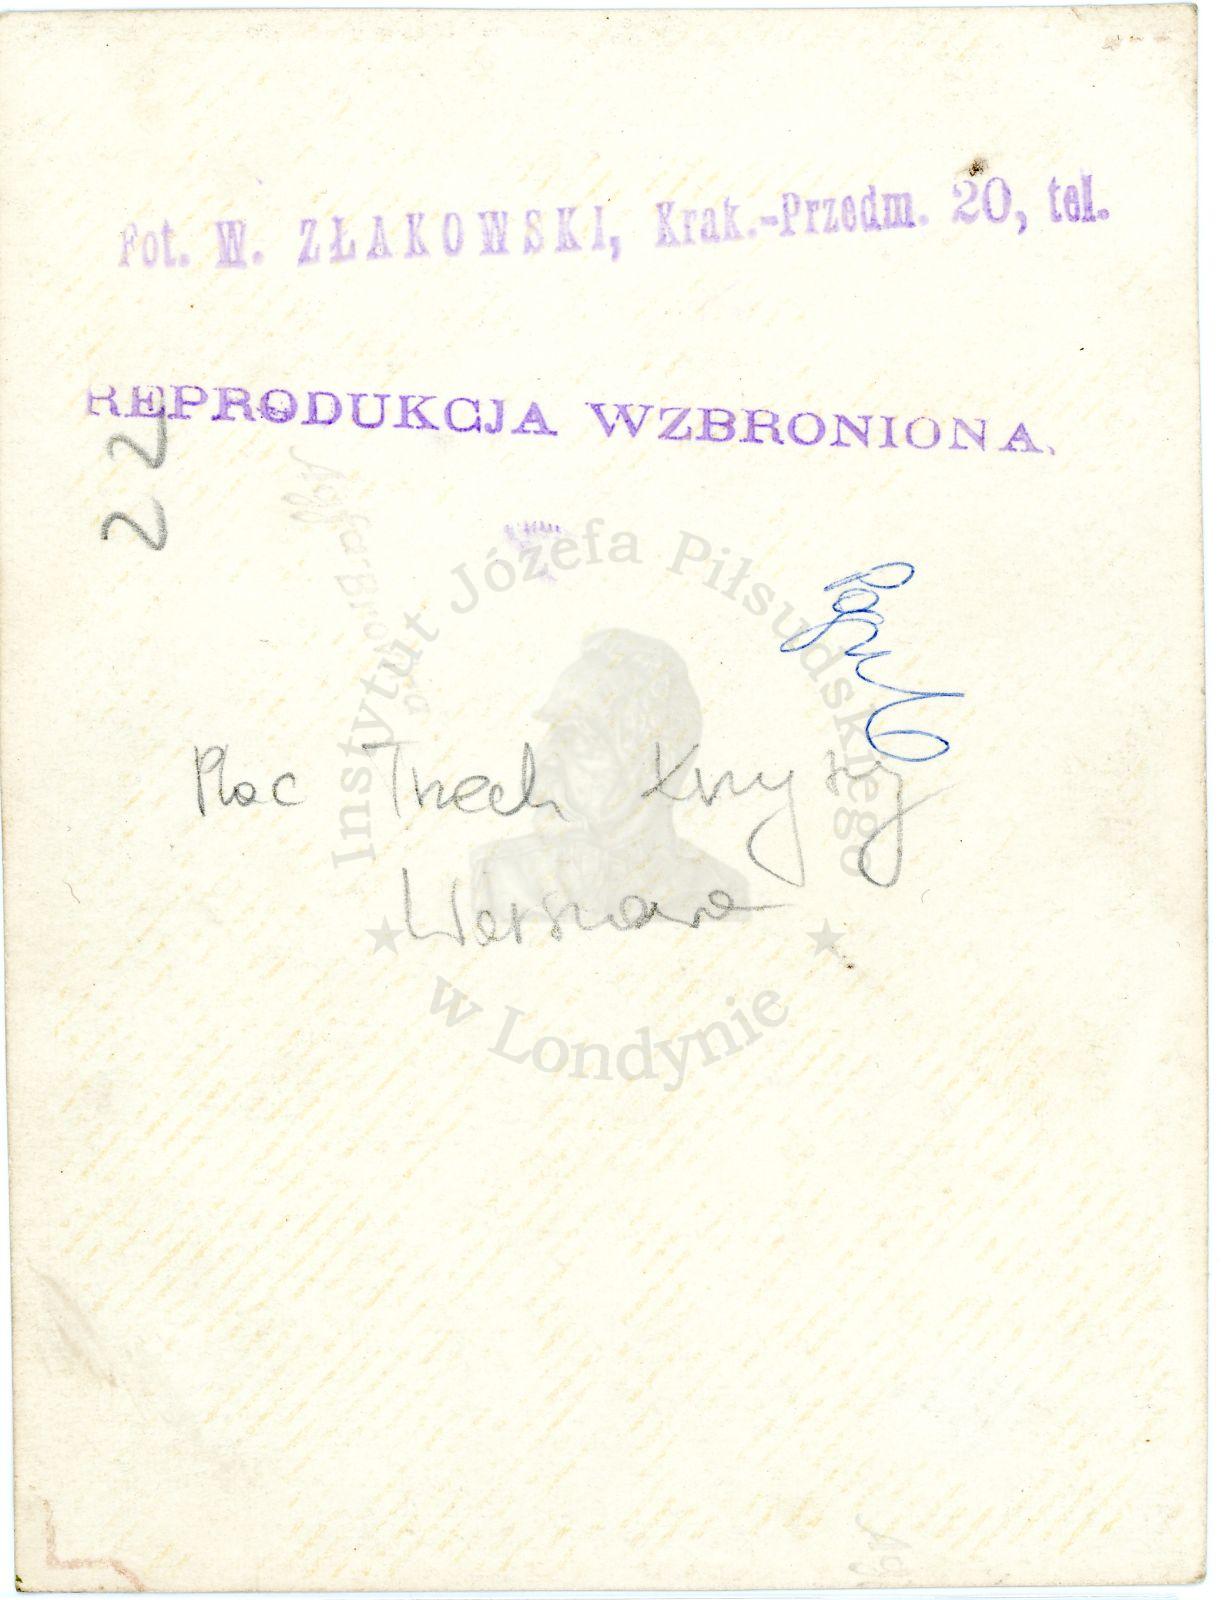 Fot. W. ZŁAKOWSKI, Krak.-Przedm. 20, tel.
REPRODUKCJA WZBRONIONA.
22
Agfa-Brovira
Instytut Józefa Piłsudskiego
w Londynie
Plac Trzech Krzyży
Warszawa
Ag